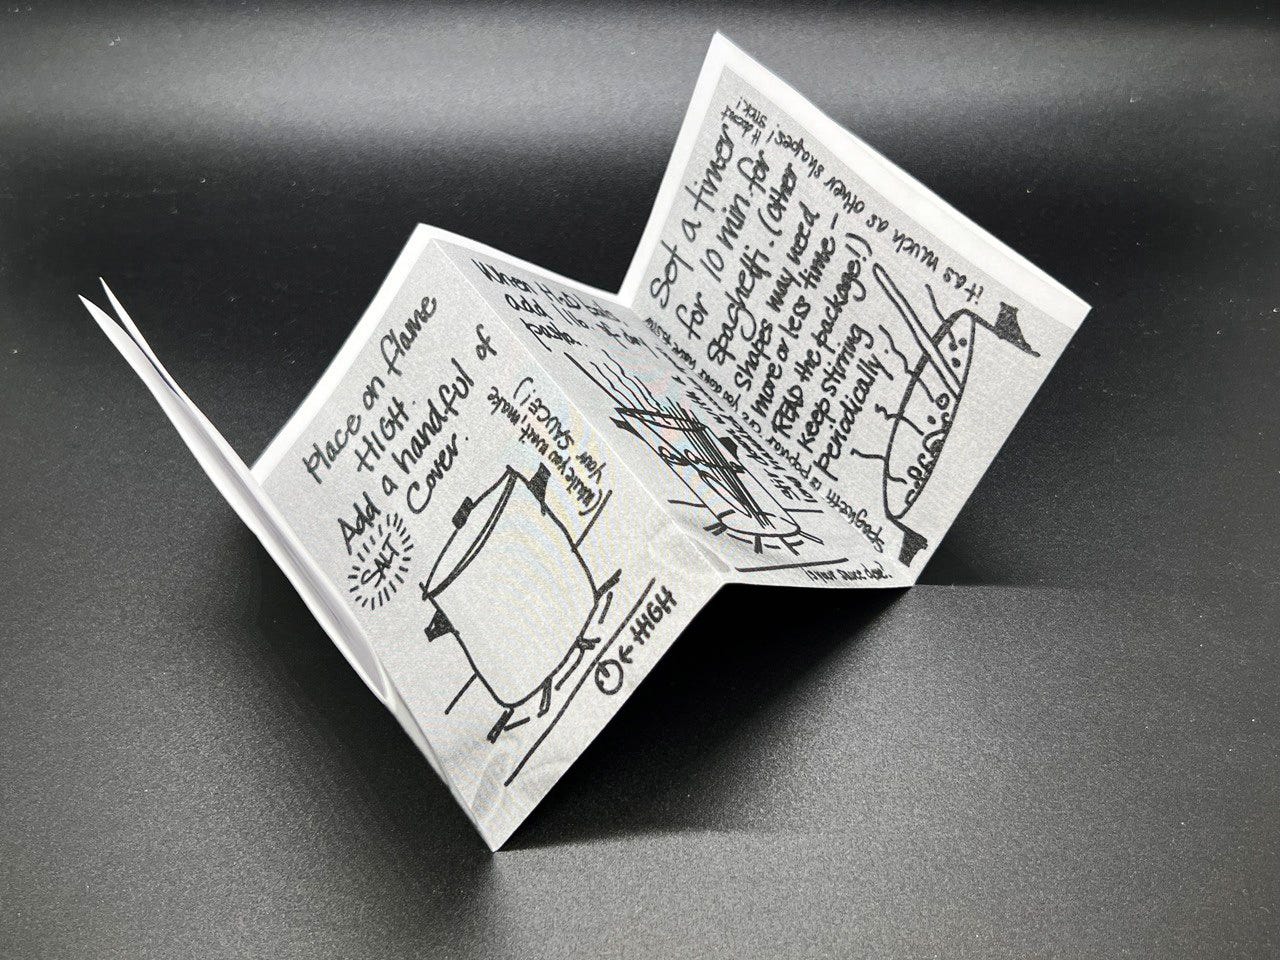 Place on flame
HIGH.
Add a handful of
SALT
Cover.
(While you wait, make
your SAUCE!)
← HIGH
When H2O boils,
add 1 lb. of
pasta.
Is your sauce done?
Set a timer
for 10 min for
spaghetti. (other
shapes may need
more or less time —
READ the package!)
Keep stirring
periodically.
Spaghetti is popular
it as much as other shapes! It doesn't
stick!